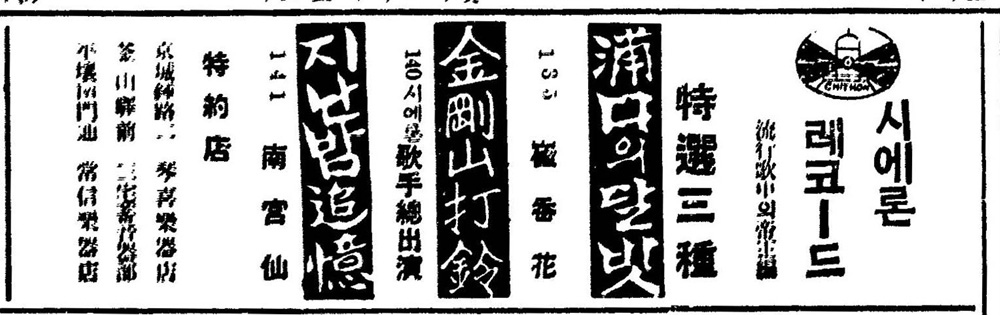 시에론
레코ー드
流行歌中의帝王編
特選三種
浦口의달빗
135 崔香花
金剛山打鈴
140 시에론歌手總出演
지난밤追憶
141 南宮仙
特約店
京城鍾路二 琴喜樂器店
釜山驛前 三宅蓄音器部
平壤南門通 常信樂器店